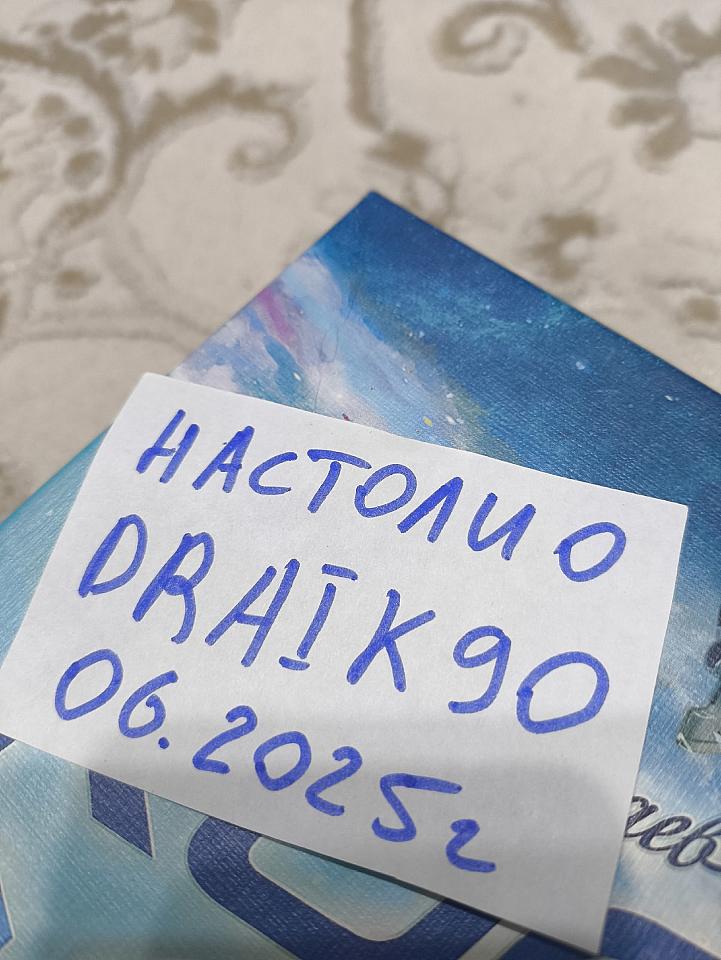 НАСТОЛИО
DRAIK90
06.2025г